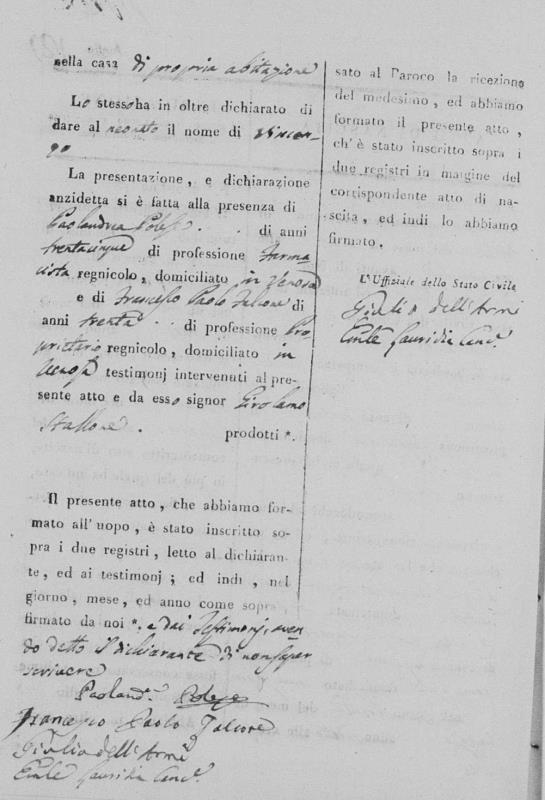 nella casa di propria abitazione
Lo stesso ha in oltre dichiarato di
dare al neonato il nome di Vincen-
zo
La presentazione, e dichiarazione
anzidetta si è fatta alla presenza di
Paolandrea . . di anni
trentacinque di professione Farma-
cista regnicolo, domiciliato in Venosa
e di Francesco Paolo di
anni trenta . . di professione Pro-
prietario regnicolo, domiciliato in
Venosa testimonj intervenuti al pre-
sente atto e da esso signor Girolamo
Stallone . prodotti *.
Il presente atto, che abbiamo for-
mato all'uopo, è stato inscritto so-
pra i due registri, letto al dichiaran-
te, ed ai testimonj; ed indi, nel
giorno, mese, ed anno come sopra,
firmato da noi *. e dai Testimonj, aven-
do detto il dichiarante di non saper
scrivere
Paoland.
Francesco Paolo
Giulio dell'Armi
sato al Paroco la ricezione
del medesimo, ed abbiamo
formato il presente atto,
ch'è stato inscritto sopra i
due registri in margine del
corrispondente atto di na-
scita, ed indi lo abbiamo
firmato.
L'Uffiziale dello Stato Civile
Giulio dell'Armi